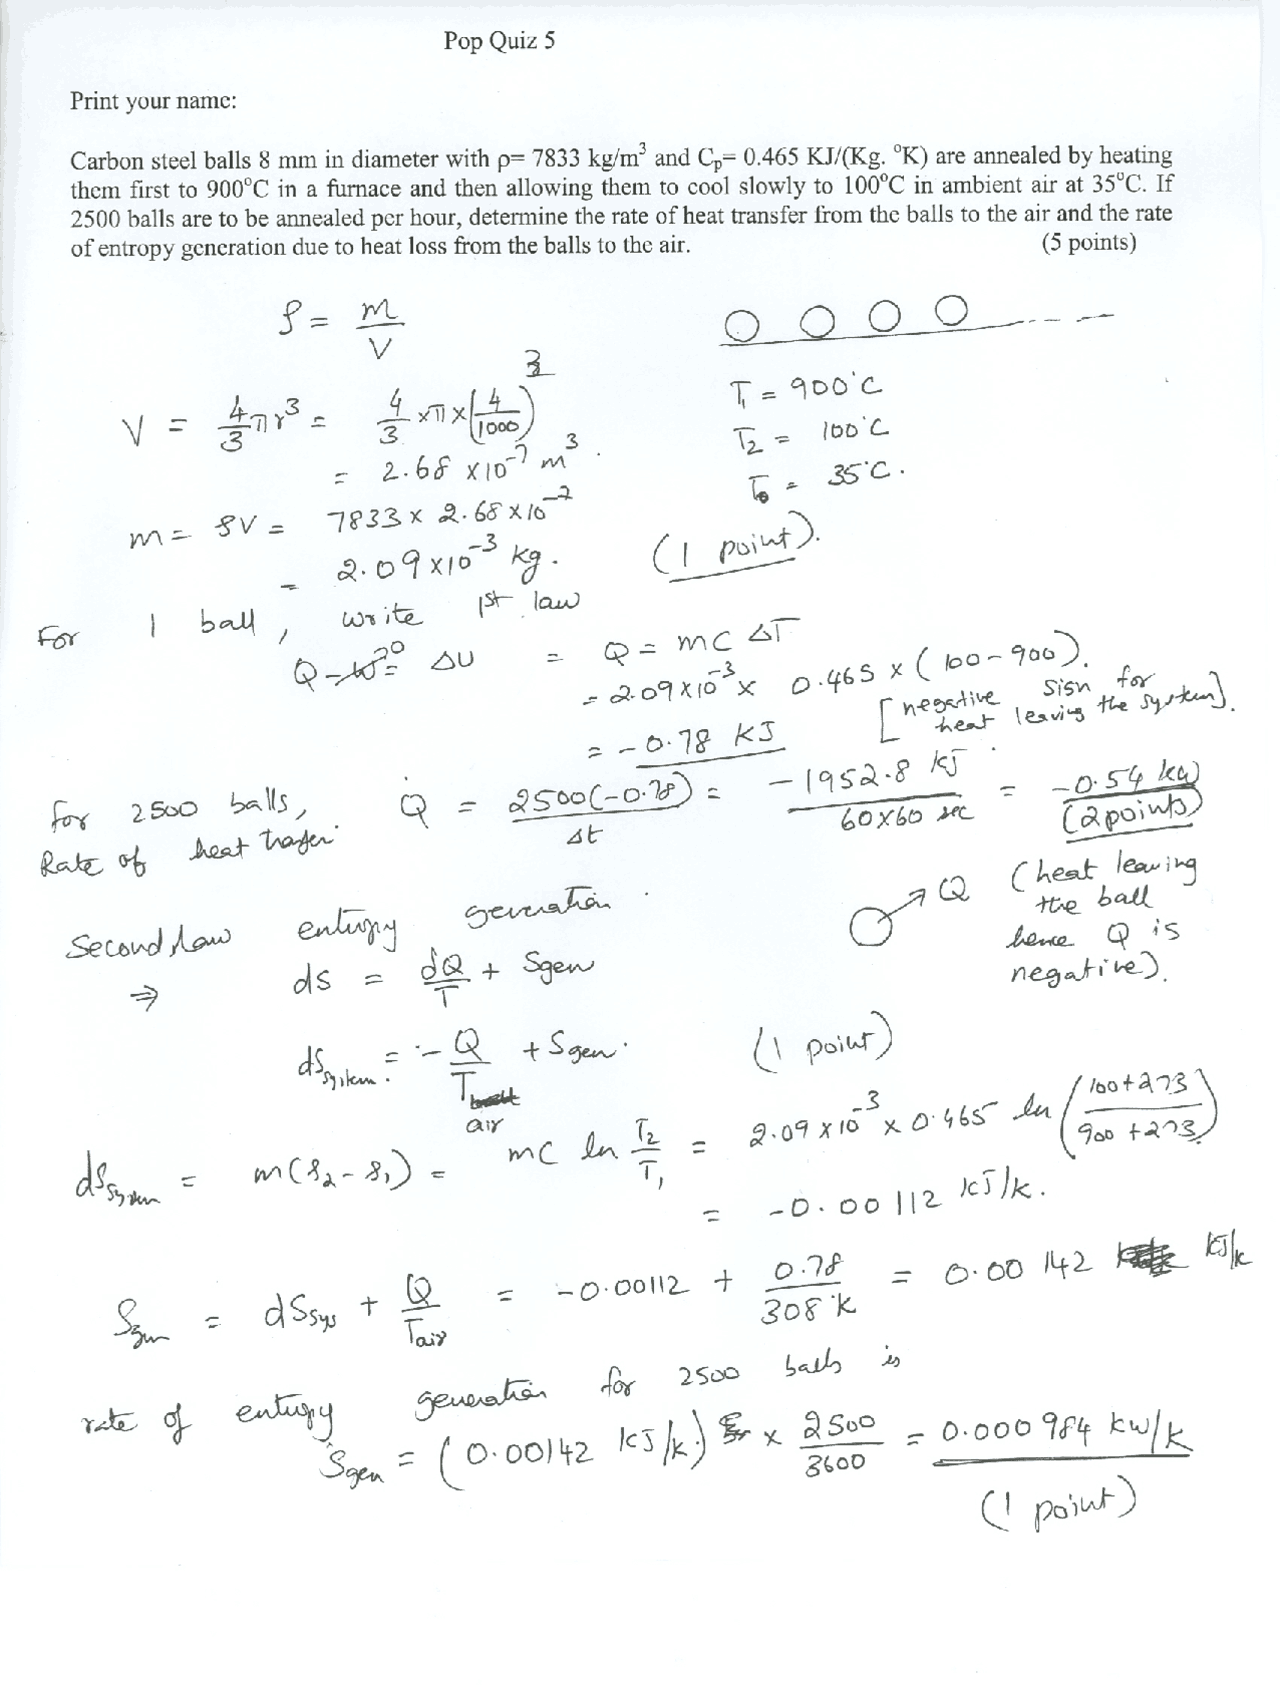 Pop Quiz 5
Print your name:
Carbon steel balls 8 mm in diameter with ρ= 7833 kg/m³ and Cp= 0.465 KJ/(Kg. °K) are annealed by heating
them first to 900°C in a furnace and then allowing them to cool slowly to 100°C in ambient air at 35°C. If
2500 balls are to be annealed per hour, determine the rate of heat transfer from the balls to the air and the rate
of entropy generation due to heat loss from the balls to the air. (5 points)
ρ = m/V
V = 4/3 πr³ = 4/3 ×π×(4/1000)³
= 2.68 ×10⁻⁷ m³.
T₁ = 900°C
T₂ = 100°C
T₀ = 35°C.
m = ρV = 7833 × 2.68×10⁻⁷
= 2.09×10⁻³ kg. (1 point).
For 1 ball, write 1st law
Q - W⁰ = ΔU = Q = mC ΔT
= 2.09×10⁻³ × 0.465 × (100-900).
= -0.78 KJ [negative sign for
heat leaving the system].
For 2500 balls,
Rate of heat transfer. Q̇ = 2500(-0.78)/Δt = -1952.8 kJ/60×60 sec = -0.54 kW
(2 points)
Q (heat leaving
the ball
hence Q is
negative).
Second law entropy generation
⇒ dS = dQ/T + Sgen
dSsystem = - Q/T air + Sgen. (1 point)
dSsystem = m(s₂-s₁) = mC ln T₂/T₁ = 2.09×10⁻³ × 0.465 ln (100+273/900+273)
= -0.00112 kJ/k.
Sgen = dSsys + Q/Tair = -0.00112 + 0.78/308°K = 0.00142 kJ/k
rate of entropy generation for 2500 balls is
Ṡgen = (0.00142 kJ/k.) × 2500/3600 = 0.000984 kw/k
(1 point)